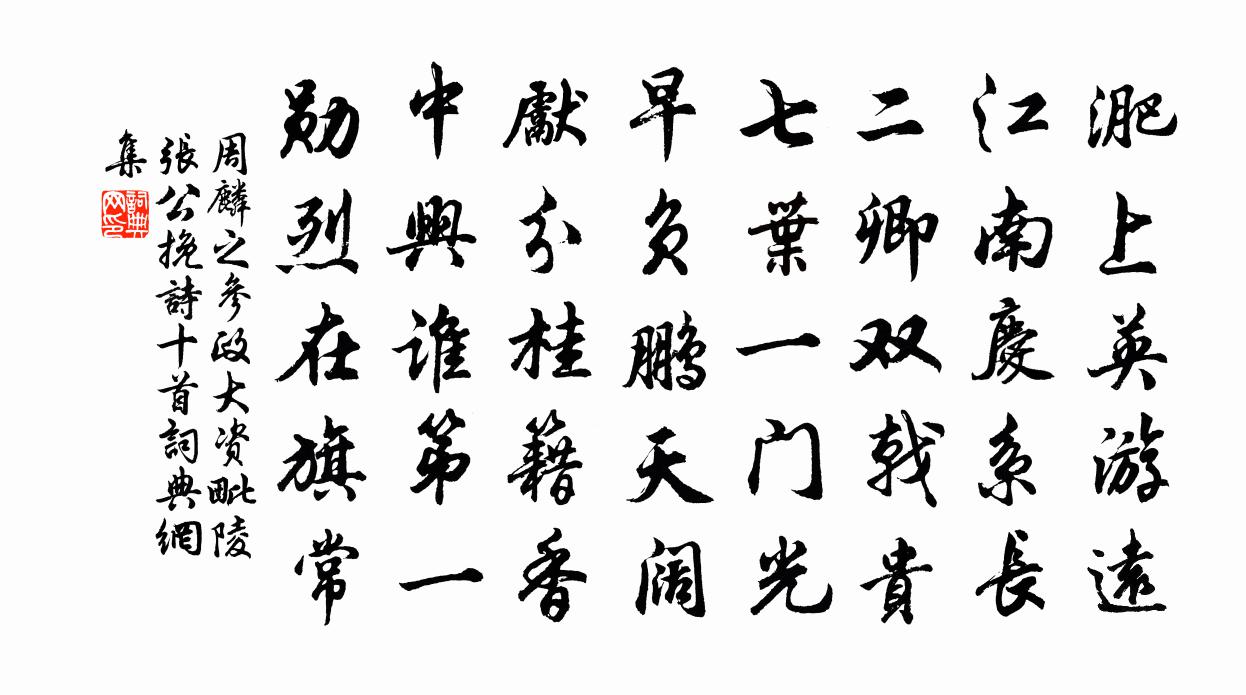 淝上英游遠
江南慶系長
二卿双戟貴
七葉一门光
早负鹏天阔
獻分桂籍香
中興谁第一
勛烈在旗常
周麟之參政大资毗陵
張公挽詩十首詞典網
集
詞典网印